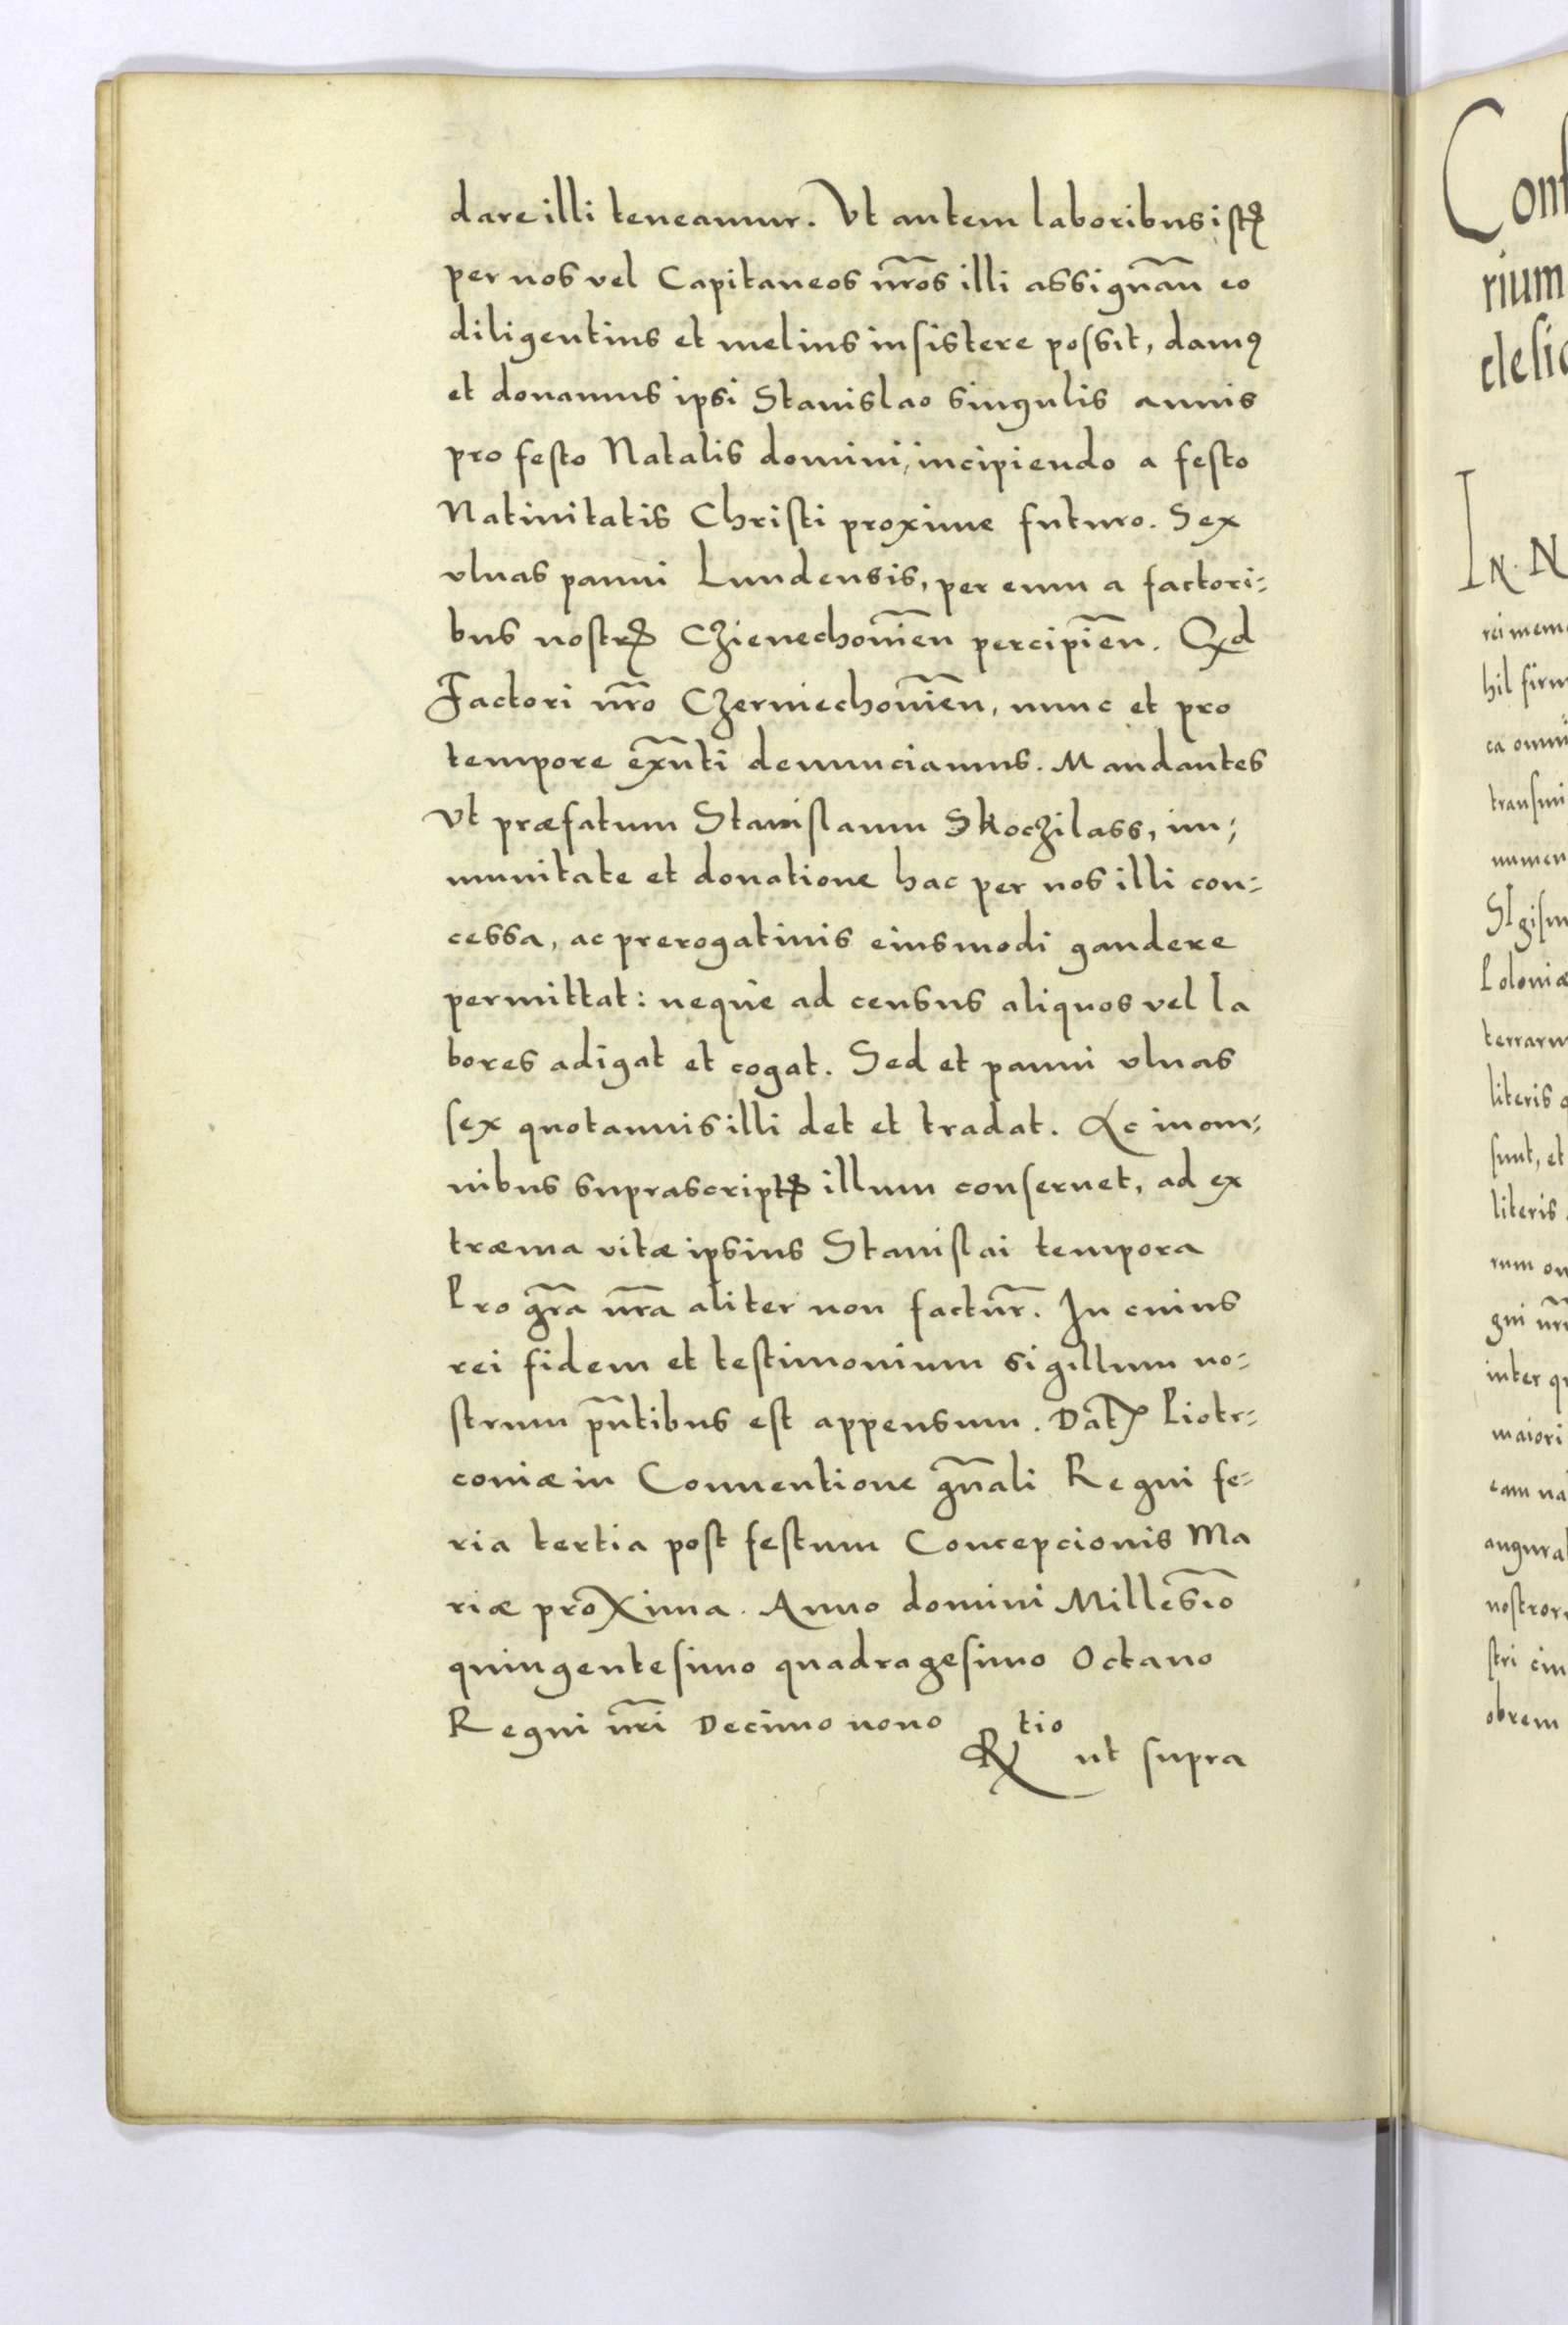 dare illi teneamur. Vt autem laboribus istꝭ
per nos vel Capitaneos nr̃os illi assignãn eo
diligentius et melius insistere possit, damꝰ
et donamus ipsi Stanislao singulis annis
pro festo Natalis domini, incipiendo a festo
Natiuitatis Christi proxime futuro. Sex
vlnas panni Lundensis, per eum a factori⸗
bus nostrꝭ Czienechouiẽn percipiẽn. Qd
Factori nr̃o Czerniechouiẽn, nunc et pro
tempore ex̃nti denunciamus. Mandantes
Vt præfatum Stanislaum Skoczilass, im⸗
munitate et donatione hac per nos illi con⸗
cessa, ac prerogatiuis eiusmodi gaudere
permittat: neque ad census aliquos vel la
bores adigat et cogat. Sed et panni vlnas
sex quotannis illi det et tradat. Ac in om⸗
nibus suprascriptꝭ illum conseruet, ad ex
træma vitæ ipsius Stanislai tempora
Pro gr̃a nr̃a aliter non factur̃. In cuius
rei fidem et testimonium sigillum no⸗
strum pñtibus est appensum. Dat̃ Piotr⸗
couiæ in Conuentione gñali Regni fe⸗
ria tertia post festum Concepcionis Ma
riæ proxima. Anno domini Millesĩo
quingentesimo quadragesimo Octauo
Regni nr̃i Decimo nono
R tio ut supra
Con
rium
clesi
In. N
rei mem
hil firm
ca omni
transmi
numen
SIgism
Poloniæ
terraru
literis
sunt, et
literis
rum om
gni nr̃
inter q
maiori
eam na
augura
nostror
stri
obrem